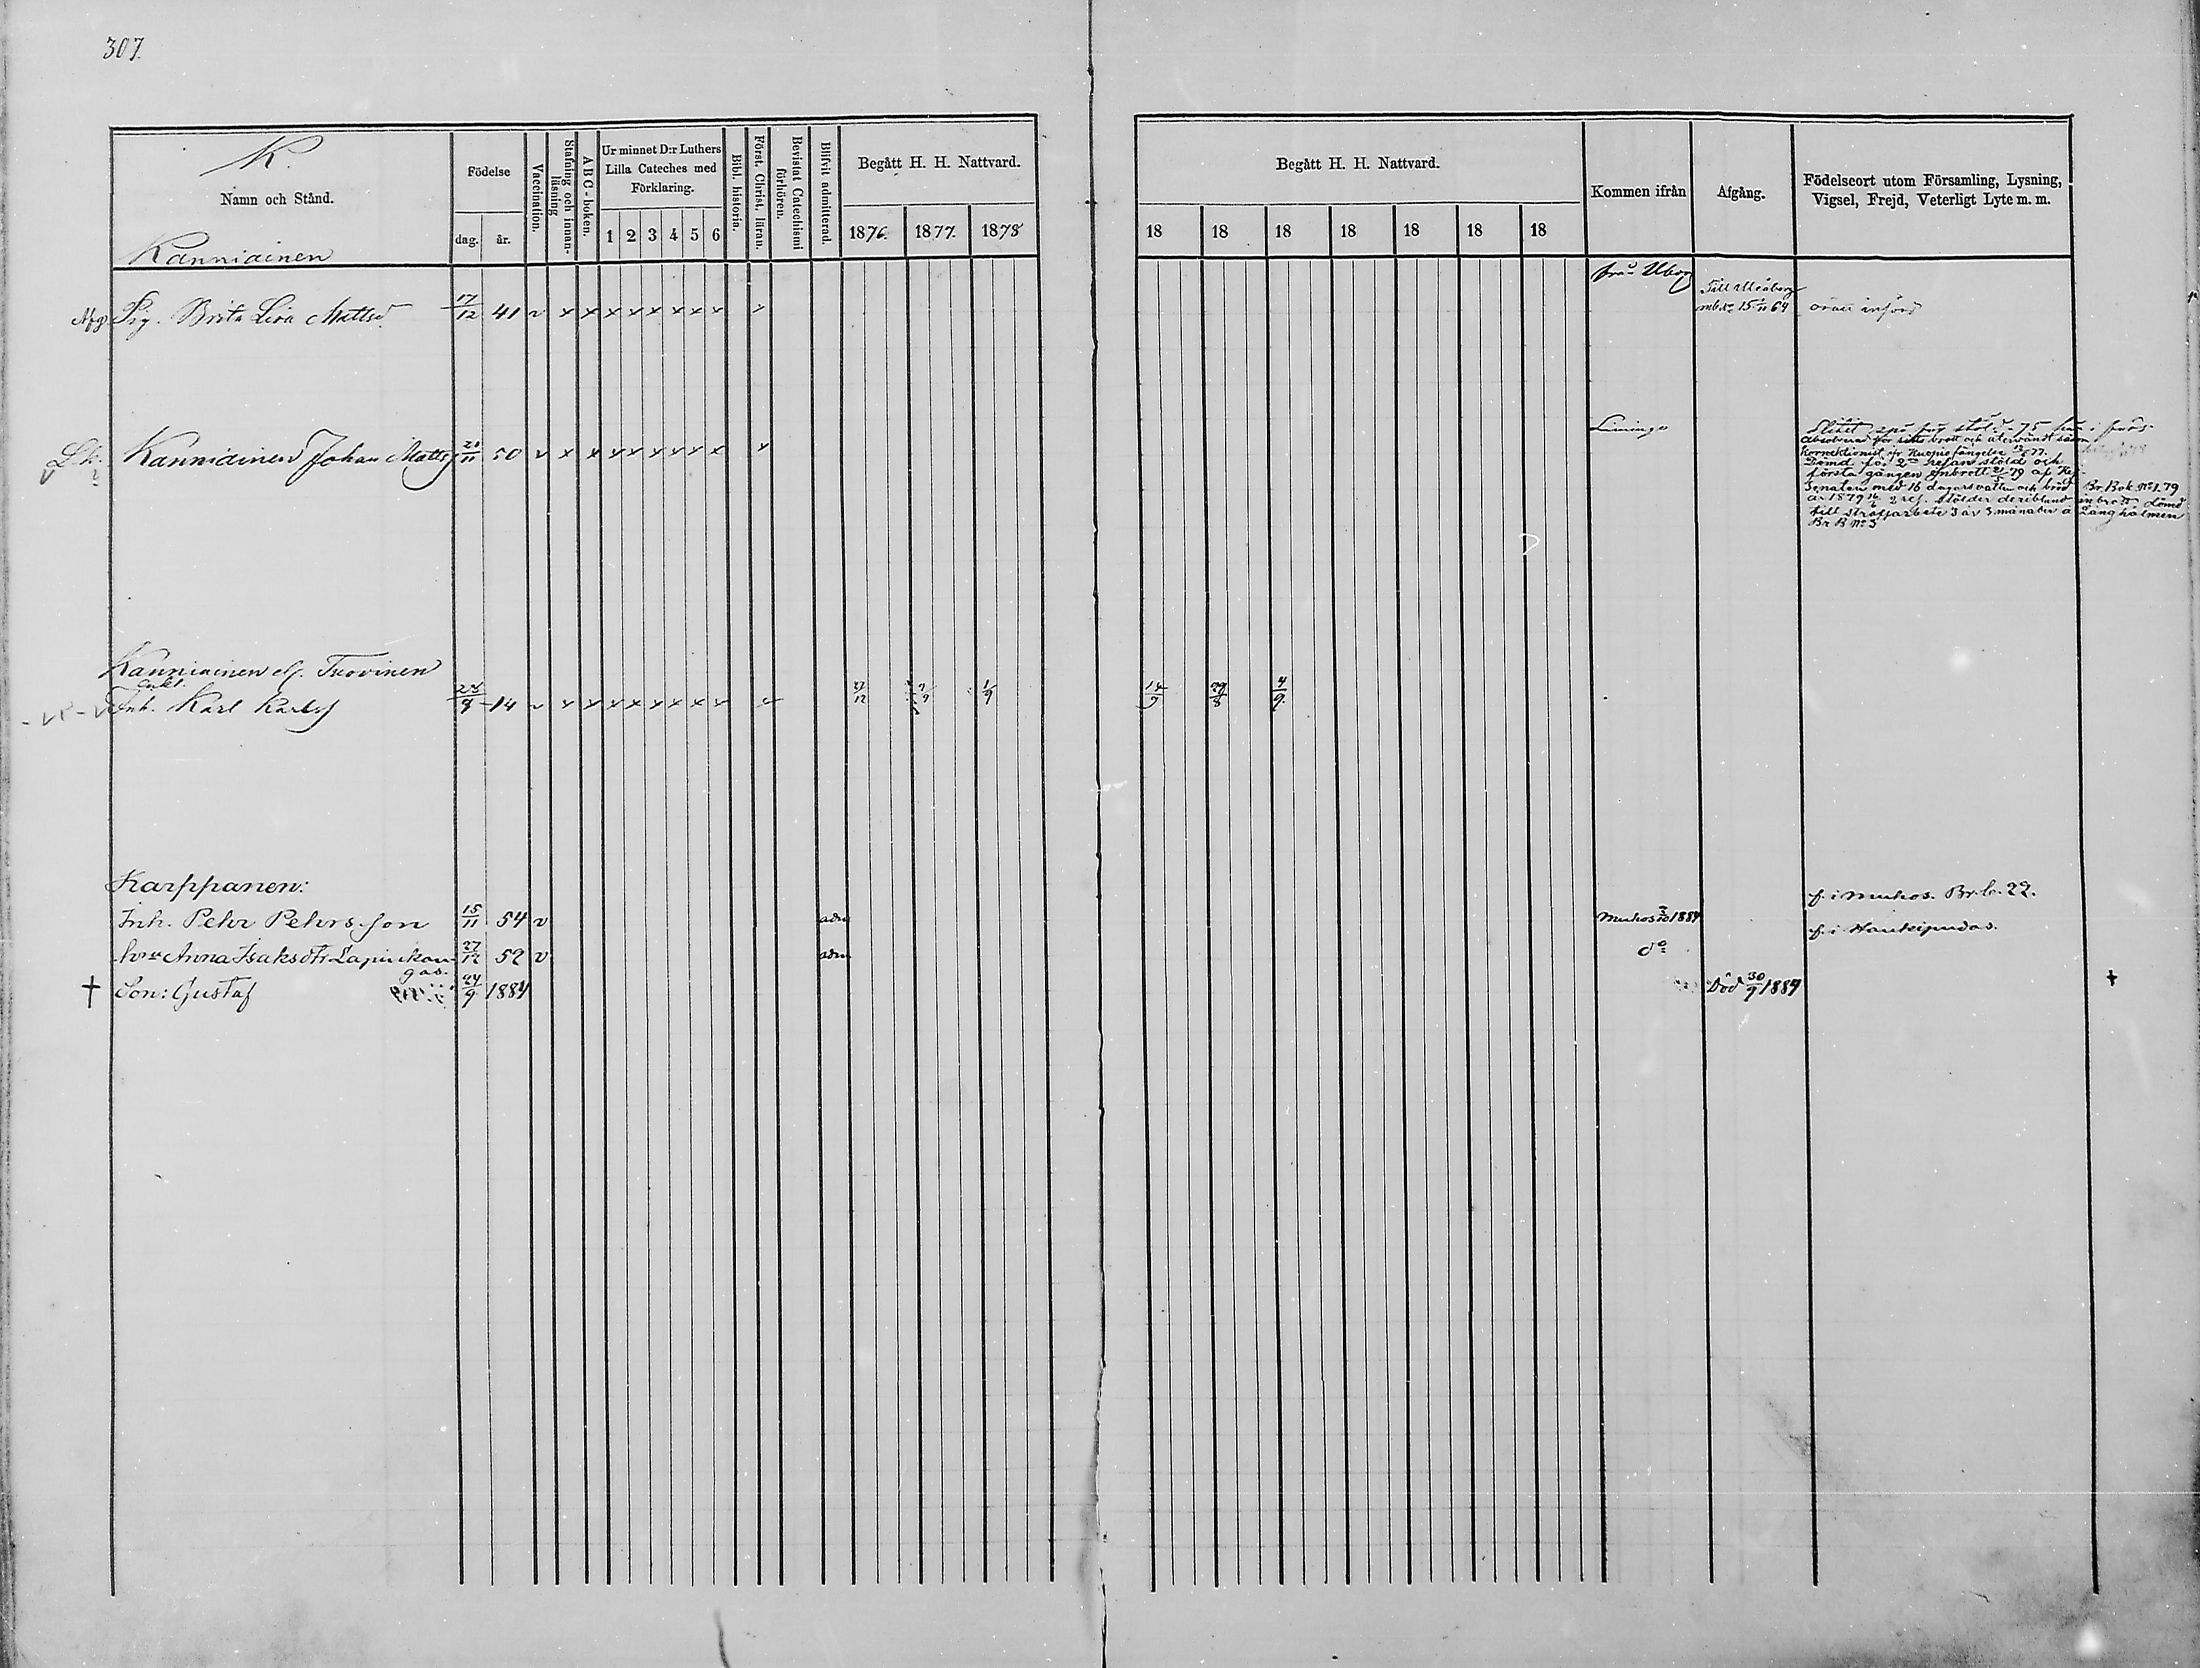 307.
K.
Namn och Stånd.
Födelse
dag. år.
Vaccination.
Stafning och innan-
läsning
ABC-boken.
Ur minnet D:r Luthers
Lilla Cateches med
Förklaring.
1 2 3 4 5 6
Bibl. historia.
Först. Christ. läran.
Bevistat Catechismi
förhören.
Blifvit admitterad.
Begått H. H. Nattvard.
1876. 1877. 1878
Begått H. H. Nattvard.
18 18 18 18 18 18 18
Kommen ifrån
Afgång.
Födelseort utom Församling, Lysning,
Vigsel, Frejd, Veterligt Lyte m. m.
Kanniainen
Pig. Brita Lisa Mattsd 17/12 41 v x x x x x x x x x
Till Uleåborg
15/11 64
Kanniainen Johan Mattsj 50 v x x x x x x x x x Limingo
absolverad för brott och återvändt såsom
korrektionist fr Kuopio fängelse 77.
Dömd för 2 resan stöld och
första gången inbrott 79 af Kej.
Senaten med 16 dagars vatten och bröd Br. Bok. No 1. 79
år 1879 2 res. stölder deribland inbrott dömd
till straffarbete 3 år 3 månader å Långholmen
Br B No 3
Kanniainen el. Tuovinen
Inh. Karl Karlsj 14 v x x x x x x x x x 27/12 1/9 14/9 29/8 4/9
Karppanen:
Inh. Pehr Pehrs. son 15/11 54 v adm Muhos 1884 f. i Muhos. Br. b. 22.
Anna Isaksdtr Lapinkan-
gas. 27/12 52 v adm do f. i Haukipudas.
† Son: Gustaf 24/9 1884 Död 30/9 1884 †